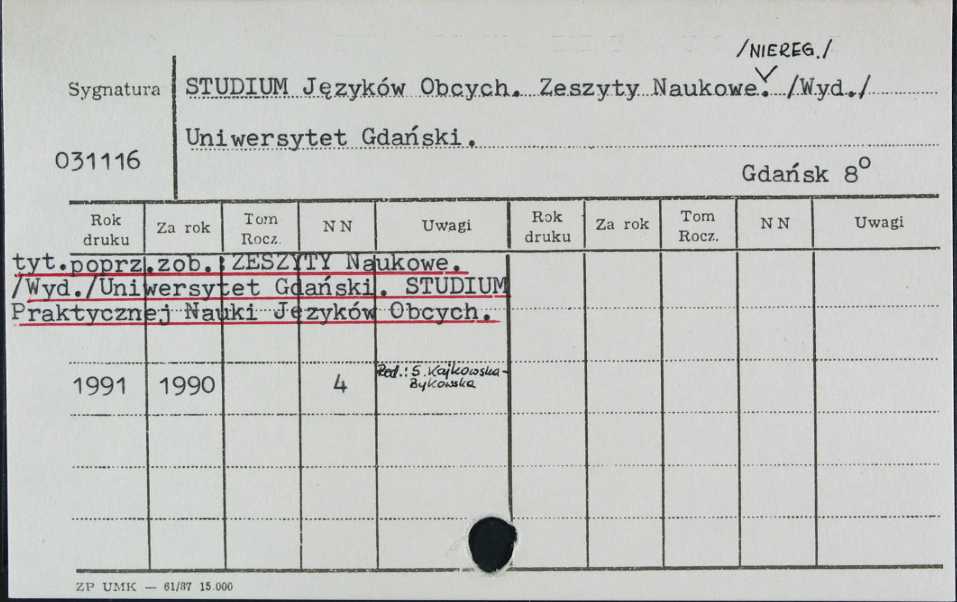 /NIEREG./
Sygnatura
STUDIUM Języków Obcych. Zeszyty Naukowe. /Wyd./
Uniwersytet Gdański.
031116
Gdańsk 8°
Rok druku Za rok Tom Rocz. NN Uwagi Rok druku Za rok Tom Rocz. NN Uwagi
tyt.poprz.zob.:ZESZYTY Naukowe.
/Wyd./Uniwersytet Gdański. STUDIUM
Praktycznej Nauki Języków Obcych.
1991 1990 4 Red.: S. Kajkowska-
Bykowska
ZP UMK — 61/87 15.000